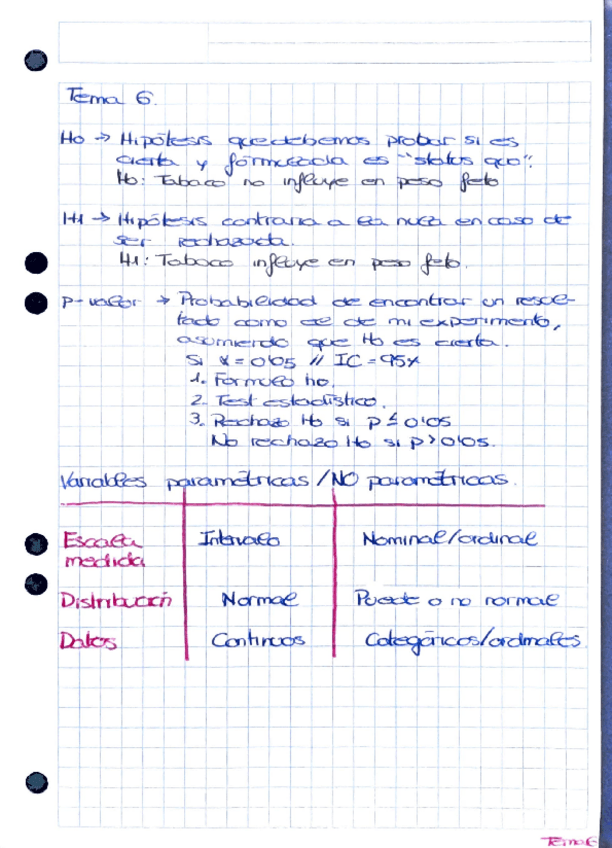 Tema 6.
H0 → Hipótesis que debemos probar si es
cierta y formulada es "status quo".
H0: Tabaco no influye en peso feto
H1 → Hipótesis contraria a la nula en caso de
ser rechazada.
H1: Tabaco influye en peso feto.
p-valor → Probabilidad de encontrar un resul-
tado como el de mi experimento,
asumiendo que H0 es cierta.
Si α = 0'05 // IC = 95%
1. Formulo h0.
2. Test estadístico.
3. Rechazo H0 si p ≤ 0'05
No rechazo H0 si p > 0'05.
Variables paramétricas / NO paramétricas.
Escala medida Intervalo Nominal/ordinal
Distribución Normal Puede o no normal
Datos Continuos Categóricos/ordinales
Tema 6